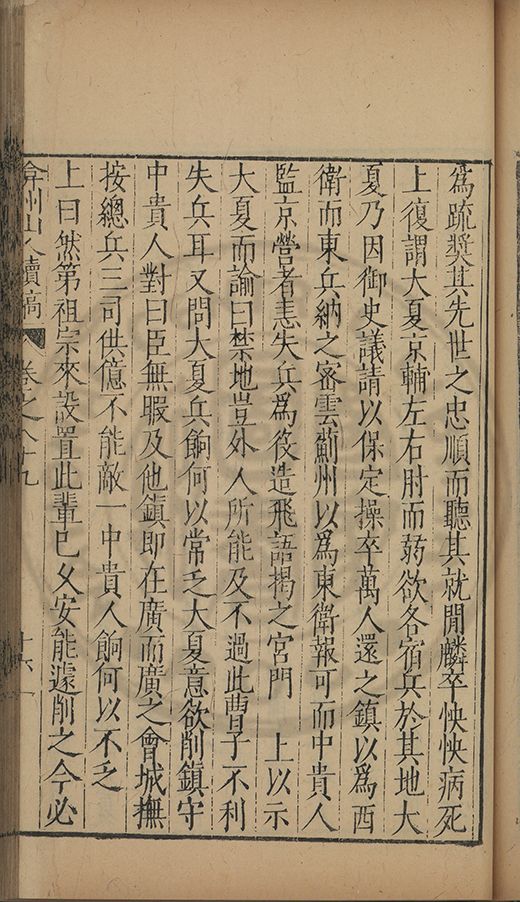 為疏奬其先世之忠順而聽其就閒麟卒怏怏病死
上復謂大夏京輔左右肘而弱欲各宿兵於其地大
夏乃因御史議請以保定操卒萬人還之鎮以為西
衛而東兵納之密雲薊州以為東衛報可而中貴人
監京營者恚失兵為役造飛語揭之宮門　上以示
大夏而諭曰禁地豈外人所能及不過此曹子不利
失兵耳又問大夏兵餉何以常乏大夏意欲削鎮守
中貴人對曰臣無暇及他鎮即在廣而廣之會城撫
按總兵三司供億不能敵一中貴人餉何以不乏
上曰然第祖宗來設置此輩已久安能遽削之今必
弇州山人續稿　卷之八十九　十六